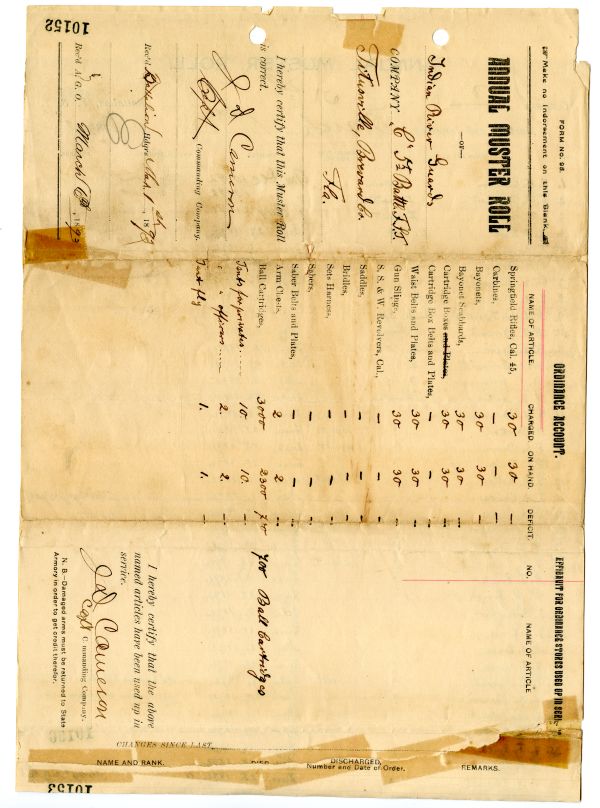 10152
FORM NO. 98.
Make no Indorsement on this Blank.
ANNUAL MUSTER ROLL
—OF—
Indian River Guards
COMPANY "C" 5th Batt. F.S.T.
Titusville, Brevard Co
Fla.
I hereby certify that this Muster Roll
is correct.
J D Cameron
Capt
Commanding Company.
Rec'd Hdqrs. 189
Rec'd A. G. O. March 6th, 1893
ORDINANCE ACCOUNT.
NAME OF ARTICLE. CHARGED. ON HAND. DEFICIT.
Springfield Rifles, Cal. 45, 30 30 –
Carbines, – – –
Bayonets, 30 30 –
Bayonet Scabbards, 30 30 –
Cartridge Boxes and Plates, 30 30 –
Cartridge Box Belts and Plates, – – –
Waist Belts and Plates, 30 30 –
Gun Slings, 30 30 –
S. S. & W. Revolvers, Cal., – – –
Saddles, – – –
Bridles, – – –
Sets Harness, – – –
Sabers, – – –
Saber Belts and Plates, – – –
Arm Chests, 2 2 –
Ball Cartridges, 3000 2300 700
Tents for privates 10 10. –
" " officers 2. 2. –
Tent fly 1. 1. –
AFFIDAVIT FOR ORDINANCE STORES USED UP IN SERV
NO. NAME OF ARTICLE
700 Ball Cartridges
I hereby certify that the above
named articles have been used up in
service.
J D Cameron
Capt Commanding Company.
N. B.—Damaged arms must be returned to State
Armory in order to get credit therefor.
CHANGES SINCE LAST
NAME AND RANK. DIED DISCHARGED, Number and Date of Order. REMARKS.
10153